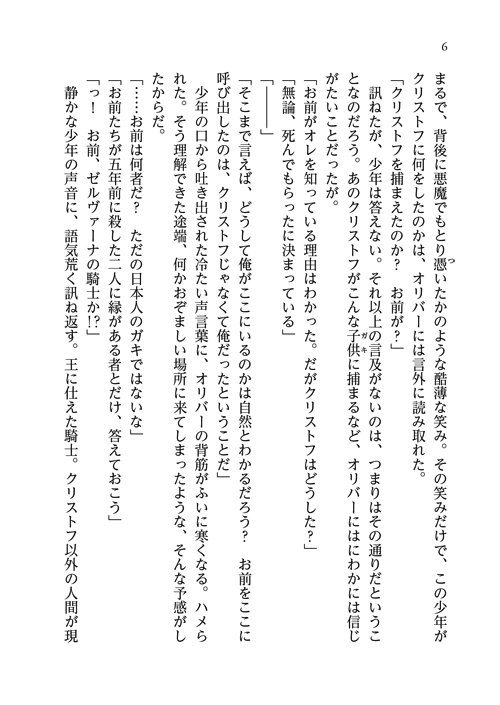 6
まるで、背後に悪魔でもとり憑いたかのような酷薄な笑み。その笑みだけで、この少年が
クリストフに何をしたのかは、オリバーには言外に読み取れた。
「クリストフを捕まえたのか？　お前が？」
訊ねたが、少年は答えない。それ以上の言及がないのは、つまりはその通りだというこ
となのだろう。あのクリストフがこんな子供に捕まるなど、オリバーにはにわかには信じ
がたいことだったが。
「お前がオレを知っている理由はわかった。だがクリストフはどうした？」
「無論、死んでもらったに決まっている」
「――――」
「そこまで言えば、どうして俺がここにいるのかは自然とわかるだろう？　お前をここに
呼び出したのは、クリストフじゃなくて俺だったということだ」
少年の口から吐き出された冷たい声言葉に、オリバーの背筋がふいに寒くなる。ハメら
れた。そう理解できた途端、何かおぞましい場所に来てしまったような、そんな予感がし
たからだ。
「……お前は何者だ？　ただの日本人のガキではないな」
「お前たちが五年前に殺した二人に縁がある者とだけ、答えておこう」
「っ！　お前、ゼルヴァーナの騎士か!?」
静かな少年の声音に、語気荒く訊ね返す。王に仕えた騎士。クリストフ以外の人間が現